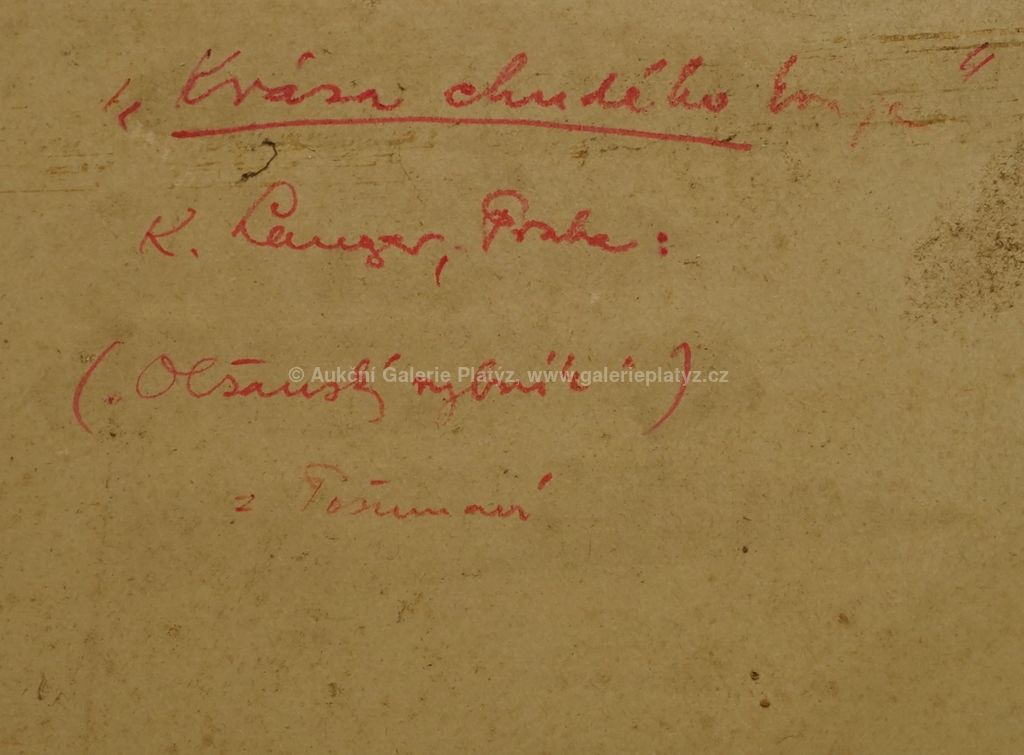 „Krása chudého kraje“
K. Langer, Praha:
(„Olšanský rybník“)
z Pošumaví
© Aukční Galerie Platýz, www.galerieplatyz.cz